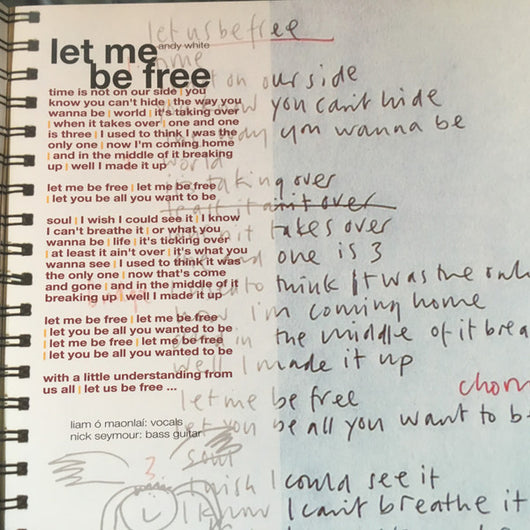 let me
andy white
be free
time is not on our side | you
know you can't hide | the way you
wanna be | world | it's taking over
| when it takes over | one and one
is three | I used to think I was the
only one | now I'm coming home
| and in the middle of it breaking
up | well I made it up
let me be free | let me be free
| let you be all you want to be
soul | I wish I could see it | I know
I can't breathe it | or what you
wanna be | life | it's ticking over
| at least it ain't over | it's what you
wanna see | I used to think it was
the only one | now that's come
and gone | and in the middle of it
breaking up | well I made it up
let me be free | let me be free
| let you be all you wanted to be
| let me be free | let me be free
| let you be all you wanted to be
with a little understanding from
us all | let us be free ...
liam ó maonlaí: vocals
nick seymour: bass guitar
let us be free
on our side
you can't hide
you wanna be
world
taking over
least it ain't over
it takes over
one is 3
to think it was the
I'm coming home
in the middle of it brea
well I made it up
chor
let me be free
let you be all you want to b
soul
3
I wish I could see it
I know I can't breathe it